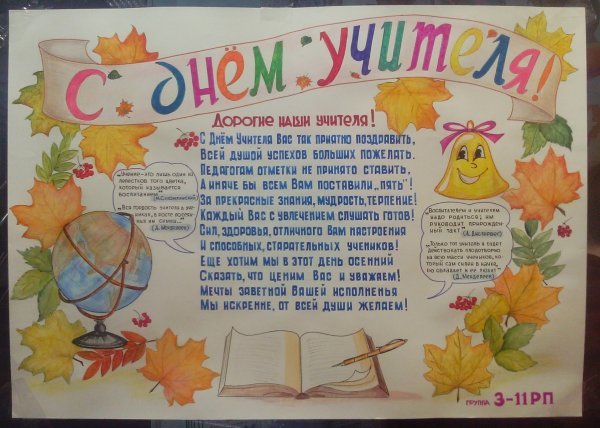 С днём учителя!
Дорогие наши учителя!
С Днём Учителя Вас так приятно поздравить,
Всей душой успехов больших пожелать.
Педагогам отметки не принято ставить,
А иначе бы всем Вам поставили „пять"!
За прекрасные знания, мудрость, терпение!
Каждый Вас с увлечением слушать готов!
Сил, здоровья, отличного Вам настроения
И способных, старательных учеников!
Ещё хотим мы в этот день осенний
Сказать, что ценим Вас и уважаем!
Мечты заветной Вашей исполненья
Мы искренне, от всей души желаем!
"Учение - это лишь один из
лепестков того цветка,
который называется
воспитанием"
"Вся гордость учителя в уче-
никах, в росте посеян-
ных им семян..."
(Д. Менделеев)
"Воспитателем и учителем
надо родиться; им
руководит прирожден-
ный такт"
(А. Дистервег)
"Только тот учитель и будет
действовать плодотворно
на всю массу учеников, ко-
торый сам силен в науке,
ею обладает и ее любит"
(Д. Менделеев)
группа 3-11РП